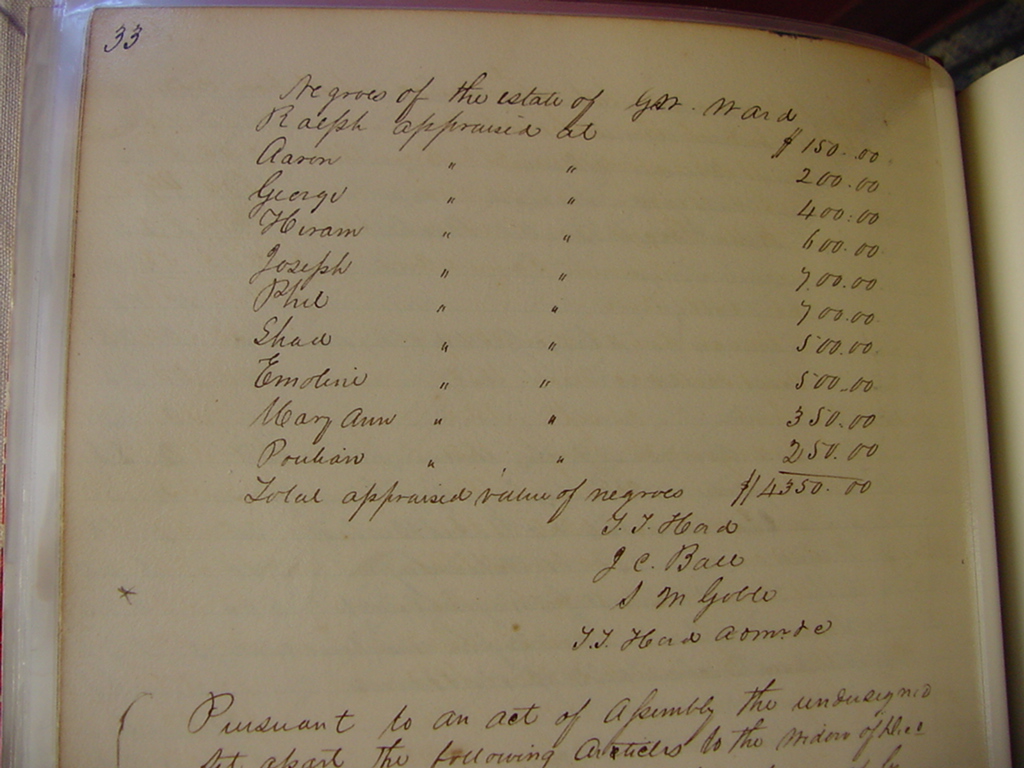 33
Negroes of the estate of Ward
Ralph appraised at $150.00
Aaron " " 200.00
George " " 400.00
Hiram " " 600.00
Joseph " " 700.00
Phil " " 700.00
Shad " " 500.00
Emoline " " 500.00
Mary Ann " " 350.00
" " 250.00
Total appraised value of negroes $4350.00
J. C. Ball
S M
Pursuant to an act of Assembly the undersigned
set apart the following articles to the